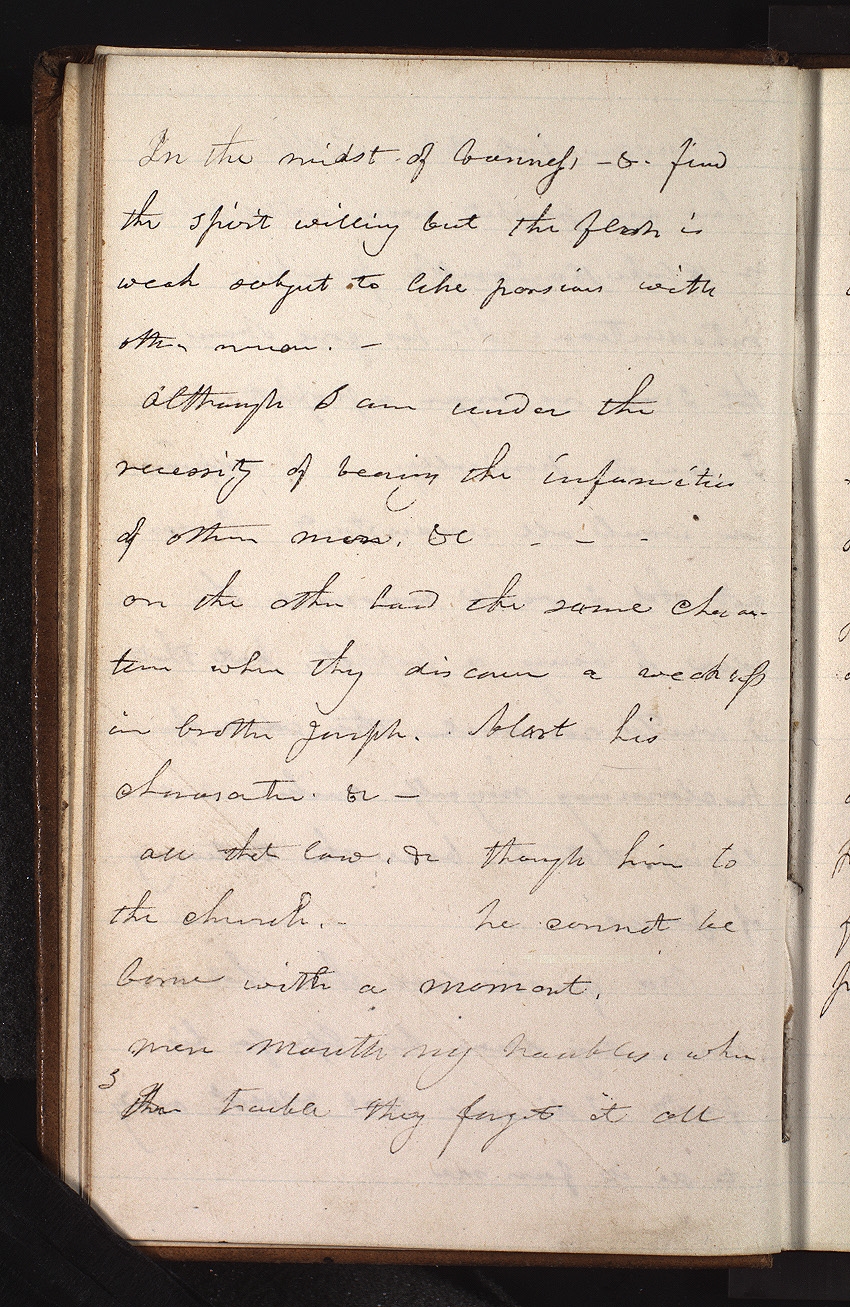 In the midst of business, - &. find
the spirit willing but the flesh is
weak subject to like passions with
other men. -
although I am under the
necessity of bearing the infirmities
of other men. &c - - -
on the other hand the same charac-
ters when they discover a weakness
in brother Joseph. blast his
character &c -
all that law. &c through him to
the church. - he cannot be
borne with a moment.
men mouth my troubles. when
3
the trouble they forget it all